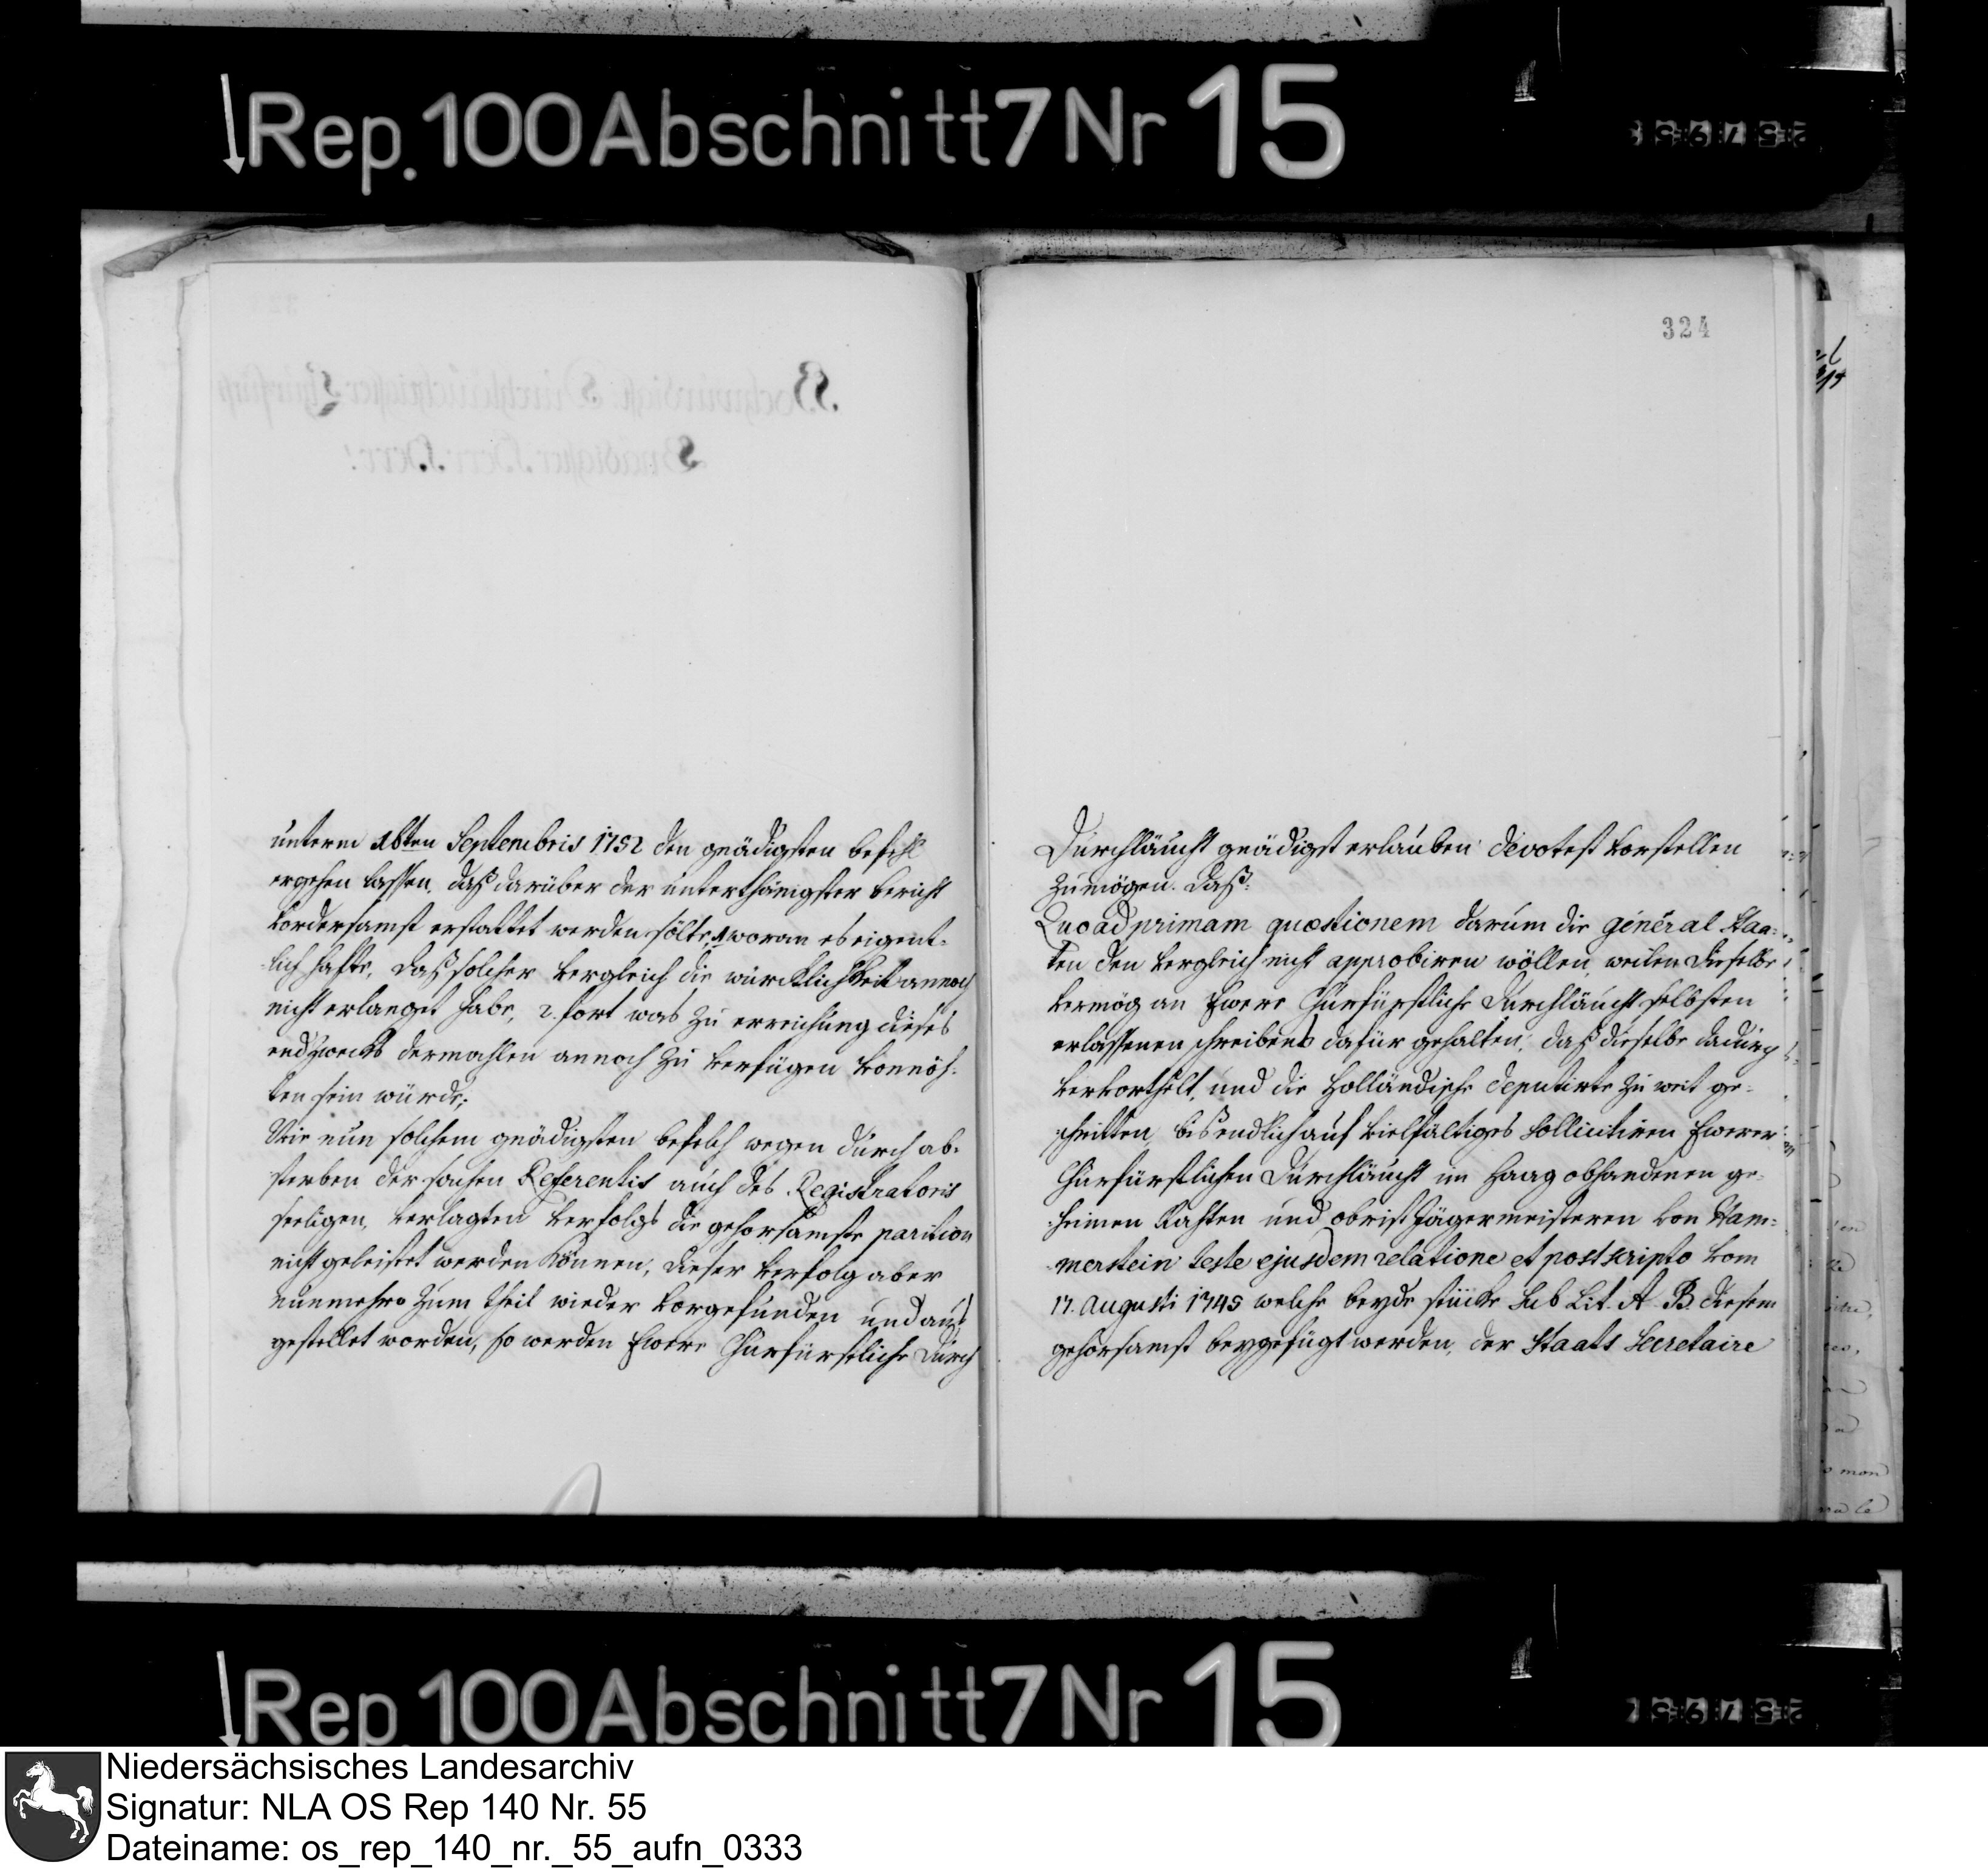 Rep. 100 Abschnitt 7 Nr 15
unterm 16ten Septembris 1752 den gnädigsten befehl
ergehen lassen, daß darüber der unterthänigster bericht
vordersamst erstattet werden sölte, 1 woran es eigent-
lich hafte, daß solcher vergleich die würcklichkeit annoch
nicht erlanget habe, 2. fort was zu erreichung dieses
endzwecks dermahlen annoch zu verfügen vonnöh-
ten sein würde;
Wie nun solchem gnädigsten befelch wegen durch ab-
sterben der sachen Referentis auch des Registratoris
seeligen, verlagten verfolgs die gehorsamste parition
nicht geleistet werden können, dieser verfolg aber
nunmehro zum theil wieder vorgefunden und auf-
gestellet worden, so werden Ewere Churfürstliche Durch
324
Durchläucht gnädigst erlauben devotest vorstellen
zu mögen. daß.
Quo ad primam quæstionem darum die général Staa-
ten den vergleich nicht approbiren wöllen, weilen dieselbe
vermög an Ewere Churfürstliche Durchläucht selbsten
erlassenen schreibens dafür gehalten, daß dieselbe dadurch
vervortheilt, und die Holländische deputirte zu weit ge-
schritten, bis endlich auf vielfältiges Sollicitiren Ewerer
Churfürstlichen Durchläucht im Haag obhandenen ge-
heimen Rahten und obrist Jägermeisteren von Ham-
merstein teste ejusdem relatione et postscripto vom
17. Augusti 1745 welche beyde stücke sub Lit. A. B. diesem
gehorsamst beygefügt werden, der Staats Secretaire
Rep. 100 Abschnitt 7 Nr 15
Niedersächsisches Landesarchiv
Signatur: NLA OS Rep 140 Nr. 55
Dateiname: os_rep_140_nr._55_aufn_0333